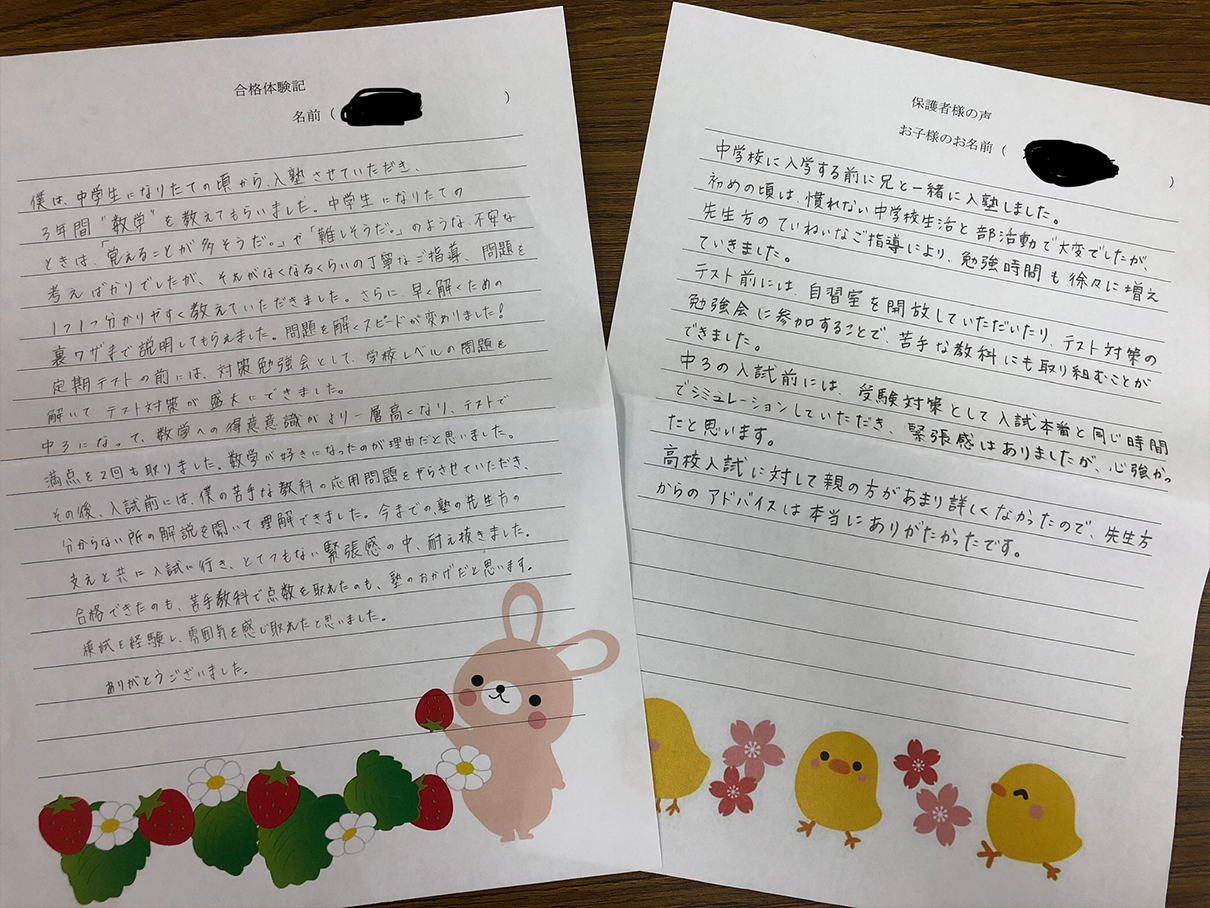 合格体験記
名前 ( )
僕は、中学生になりたての頃から、入塾させていただき、
3年間"数学"を教えてもらいました。中学生になりたての
ときは、「覚えることが多そうだ。」や「難しそうだ。」のような、不安な
考えばかりでしたが、それがなくなるくらいの丁寧なご指導、問題を
1つ1つ分かりやすく教えていただきました。さらに、早く解くための
裏ワザまで説明してもらえました。問題を解くスピードが変わりました!
定期テストの前には、対策勉強会として、学校レベルの問題を
解いてテスト対策が盛大にできました。
中3になって、数学への得意意識がより一層高くなり、テストで
満点を2回も取りました。数学が好きになったのが理由だと思いました。
その後、入試前には、僕の苦手な教科の応用問題をやらせていただき、
分からない所の解説を聞いて理解できました。今までの、塾の先生方の
支えと共に入試に行き、とてつもない緊張感の中、耐え抜きました。
合格できたのも、苦手教科で点数を取れたのも、塾のおかげだと思います。
模試を経験し、雰囲気を感じ取れたと思いました。
ありがとうございました。
保護者様の声
お子様のお名前 ( )
中学校に入学する前に兄と一緒に入塾しました。
初めの頃は、慣れない中学校生活と部活動で大変でしたが、
先生方のていねいなご指導により、勉強時間も徐々に増え
ていきました。
テスト前には、自習室を開放していただいたり、テスト対策の
勉強会に参加することで、苦手な教科にも取り組むことが
できました。
中3の入試前には、受験対策として入試本番と同じ時間
でシミュレーションしていただき、緊張感はありましたが、心強かっ
たと思います。
高校入試に対して親の方があまり詳しくなかったので、先生方
からのアドバイスは本当にありがたかったです。